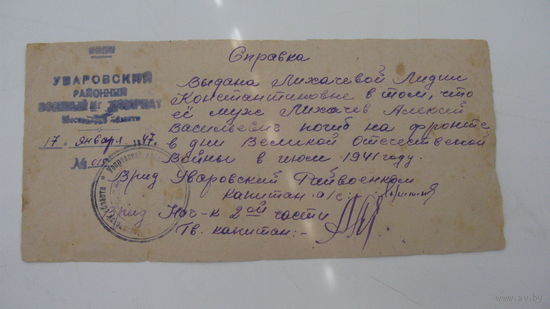 Справка
УВАРОВСКИЙ
РАЙОННЫЙ
ВОЕННЫЙ КОМИССАРИАТ
Московской области
17 января 1947.
№
Выдана Лихачевой Лидии
Константиновне в том, что
её муж Лихачев Алексей
Васильевич погиб на фронте
в дни Великой Отечественной
Войны в июле 1941 году.
Врид Уваровский Райвоенком
капитан а/с:
Врид Нач-к 2ой части
Гв. капитан: -
www.ay.by